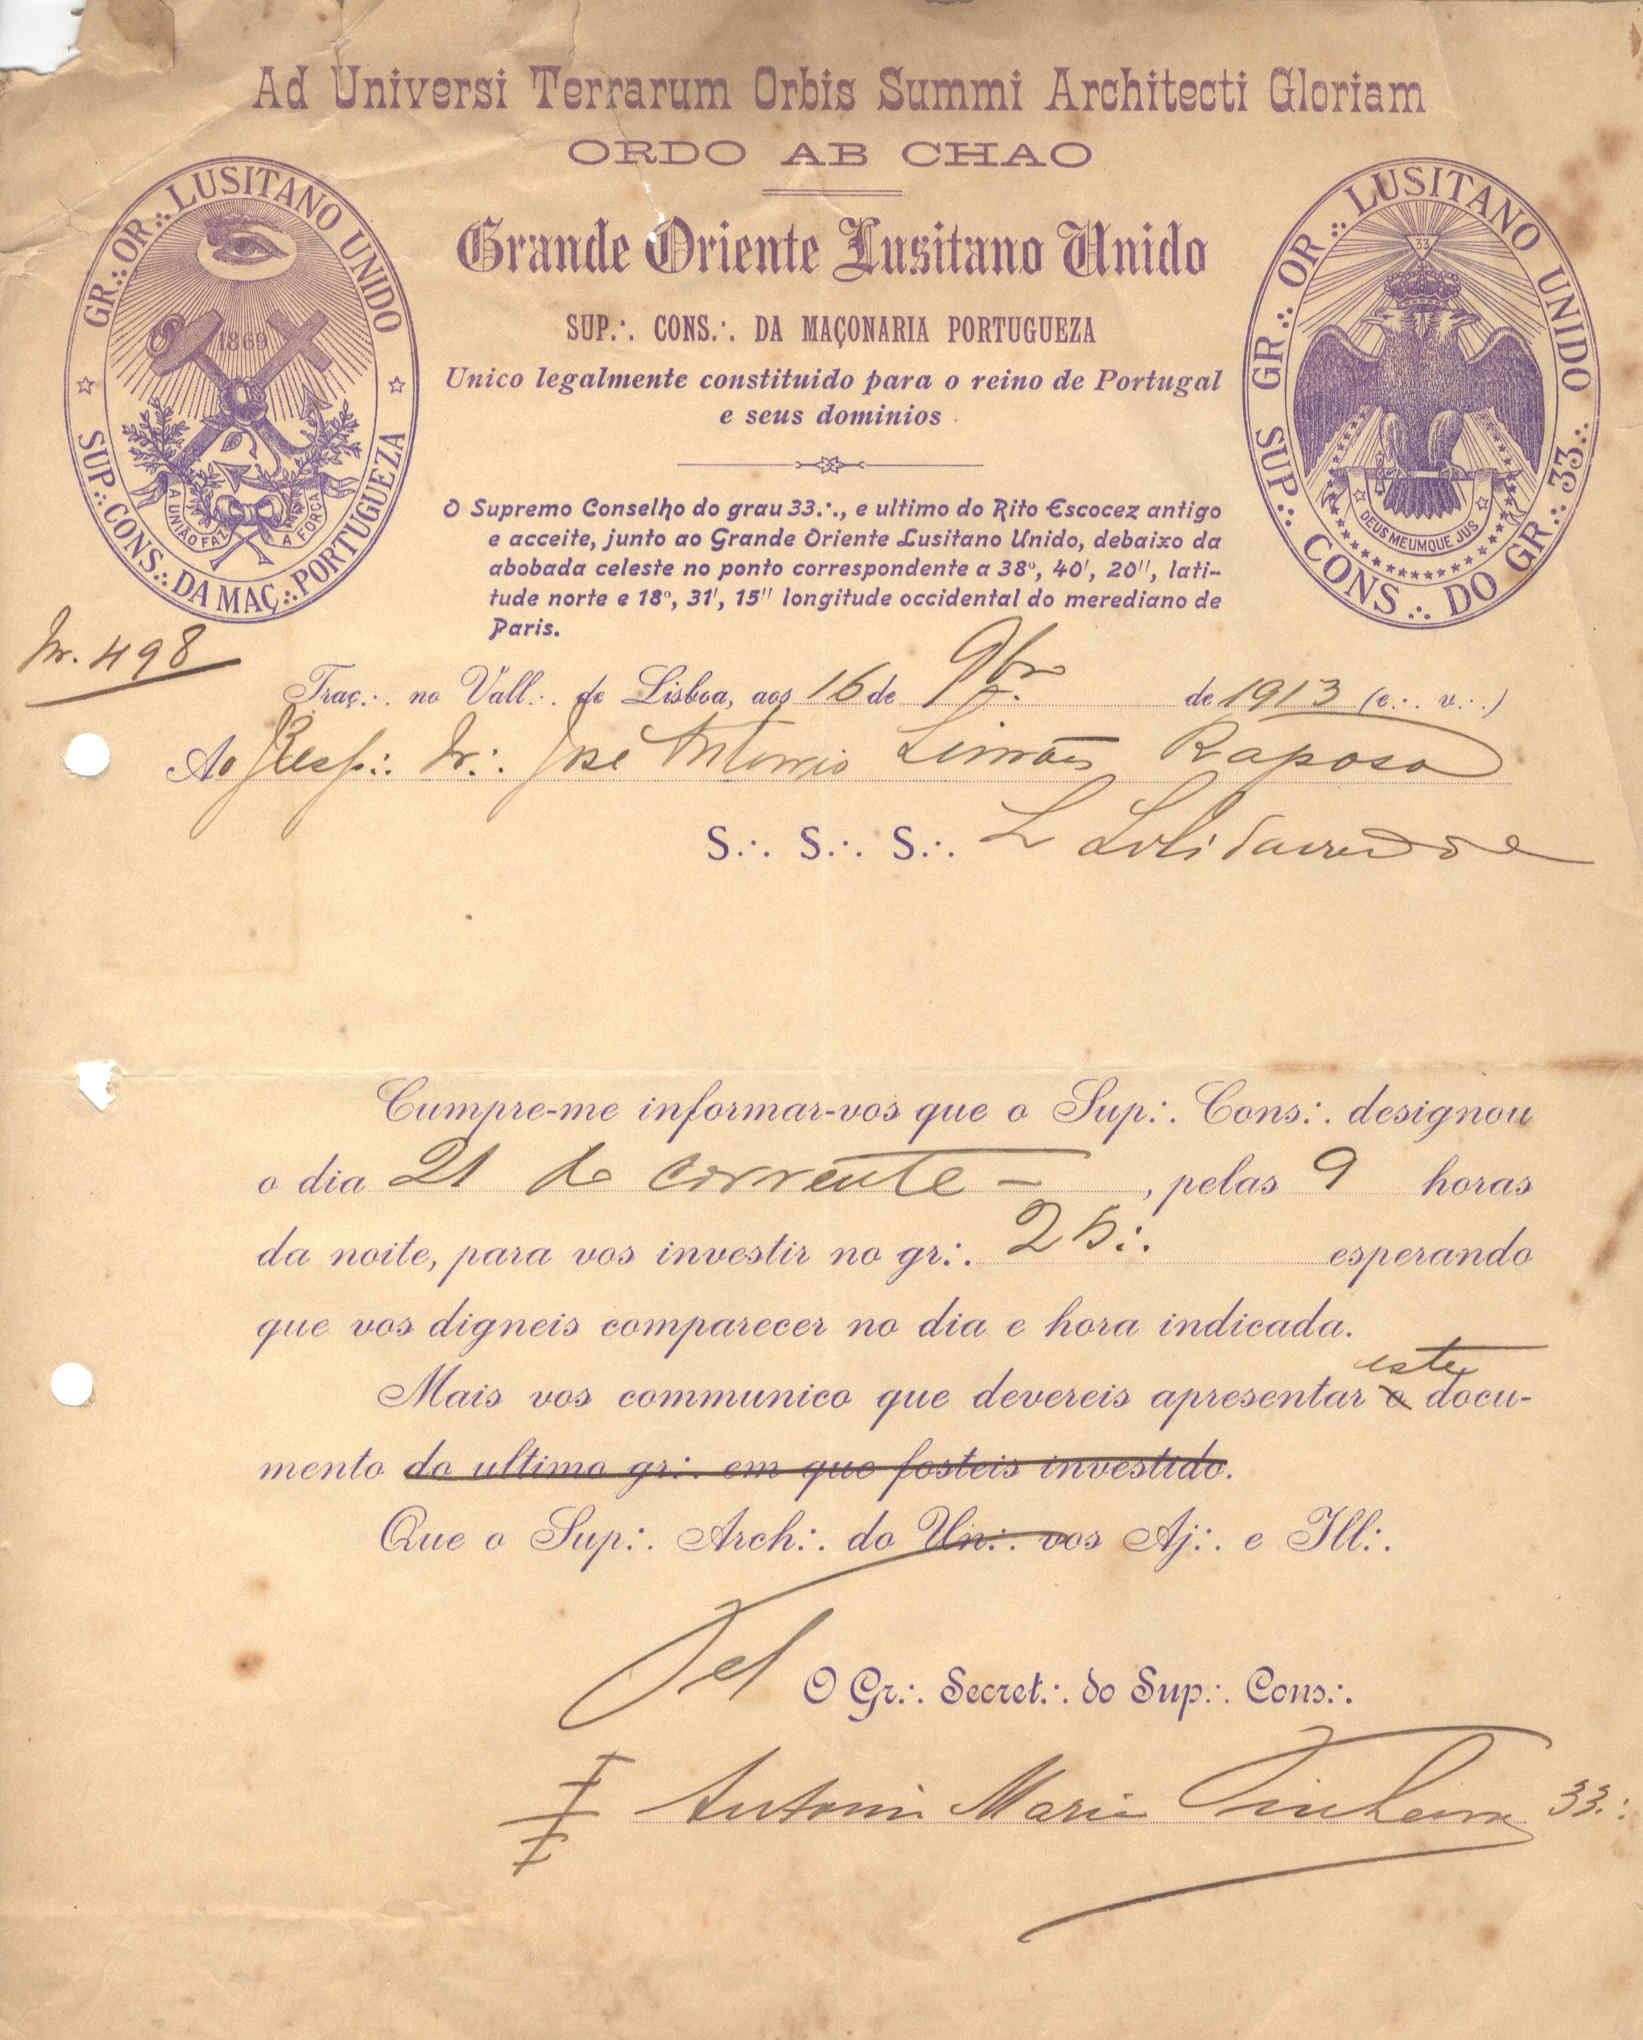 Ad Universi Terrarum Orbis Summi Architecti Gloriam
ORDO AB CHAO
Grande Oriente Lusitano Unido
SUP.∙. CONS.∙. DA MAÇONARIA PORTUGUEZA
Unico legalmente constituido para o reino de Portugal
e seus dominios
GR.∙. OR.∙. LUSITANO UNIDO
SUP.∙. CONS.∙. DA MAÇ.∙. PORTUGUEZA
1869
A UNIÃO FAZ A FORÇA
SUP.∙. CONS.∙. DO GR.∙. 33.∙.
GR.∙. OR.∙. LUSITANO UNIDO
33
DEUS MEUMQUE JUS
O Supremo Conselho do grau 33.∙., e ultimo do Rito Escocez antigo
e acceite, junto ao Grande Oriente Lusitano Unido, debaixo da
abobada celeste no ponto correspondente a 38º, 40', 20'', lati-
tude norte e 18º, 31', 15'' longitude occidental do merediano de
Paris.
Nr. 498
Traç.∙. no Vall.∙. de Lisboa, aos 16 de 9bro de 1913 (e.∙. v.∙.)
Ao Resp.∙. Ir.∙. José Antonio Simões Raposo
S.∙. S.∙. S.∙. L Solidariedade
Cumpre-me informar-vos que o Sup.∙. Cons.∙. designou
o dia 21 do corrente –, pelas 9 horas
da noite, para vos investir no gr.∙. 25.∙. esperando
que vos digneis comparecer no dia e hora indicada.
Mais vos communico que devereis apresentar o este docu-
mento do ultimo gr.∙. em que fosteis investido.
Que o Sup.∙. Arch.∙. do Un.∙. vos Aj.∙. e Ill.∙.
O Gr.∙. Secret.∙. do Sup.∙. Cons.∙.
Antonio Maria Pinheiro 33.∙.